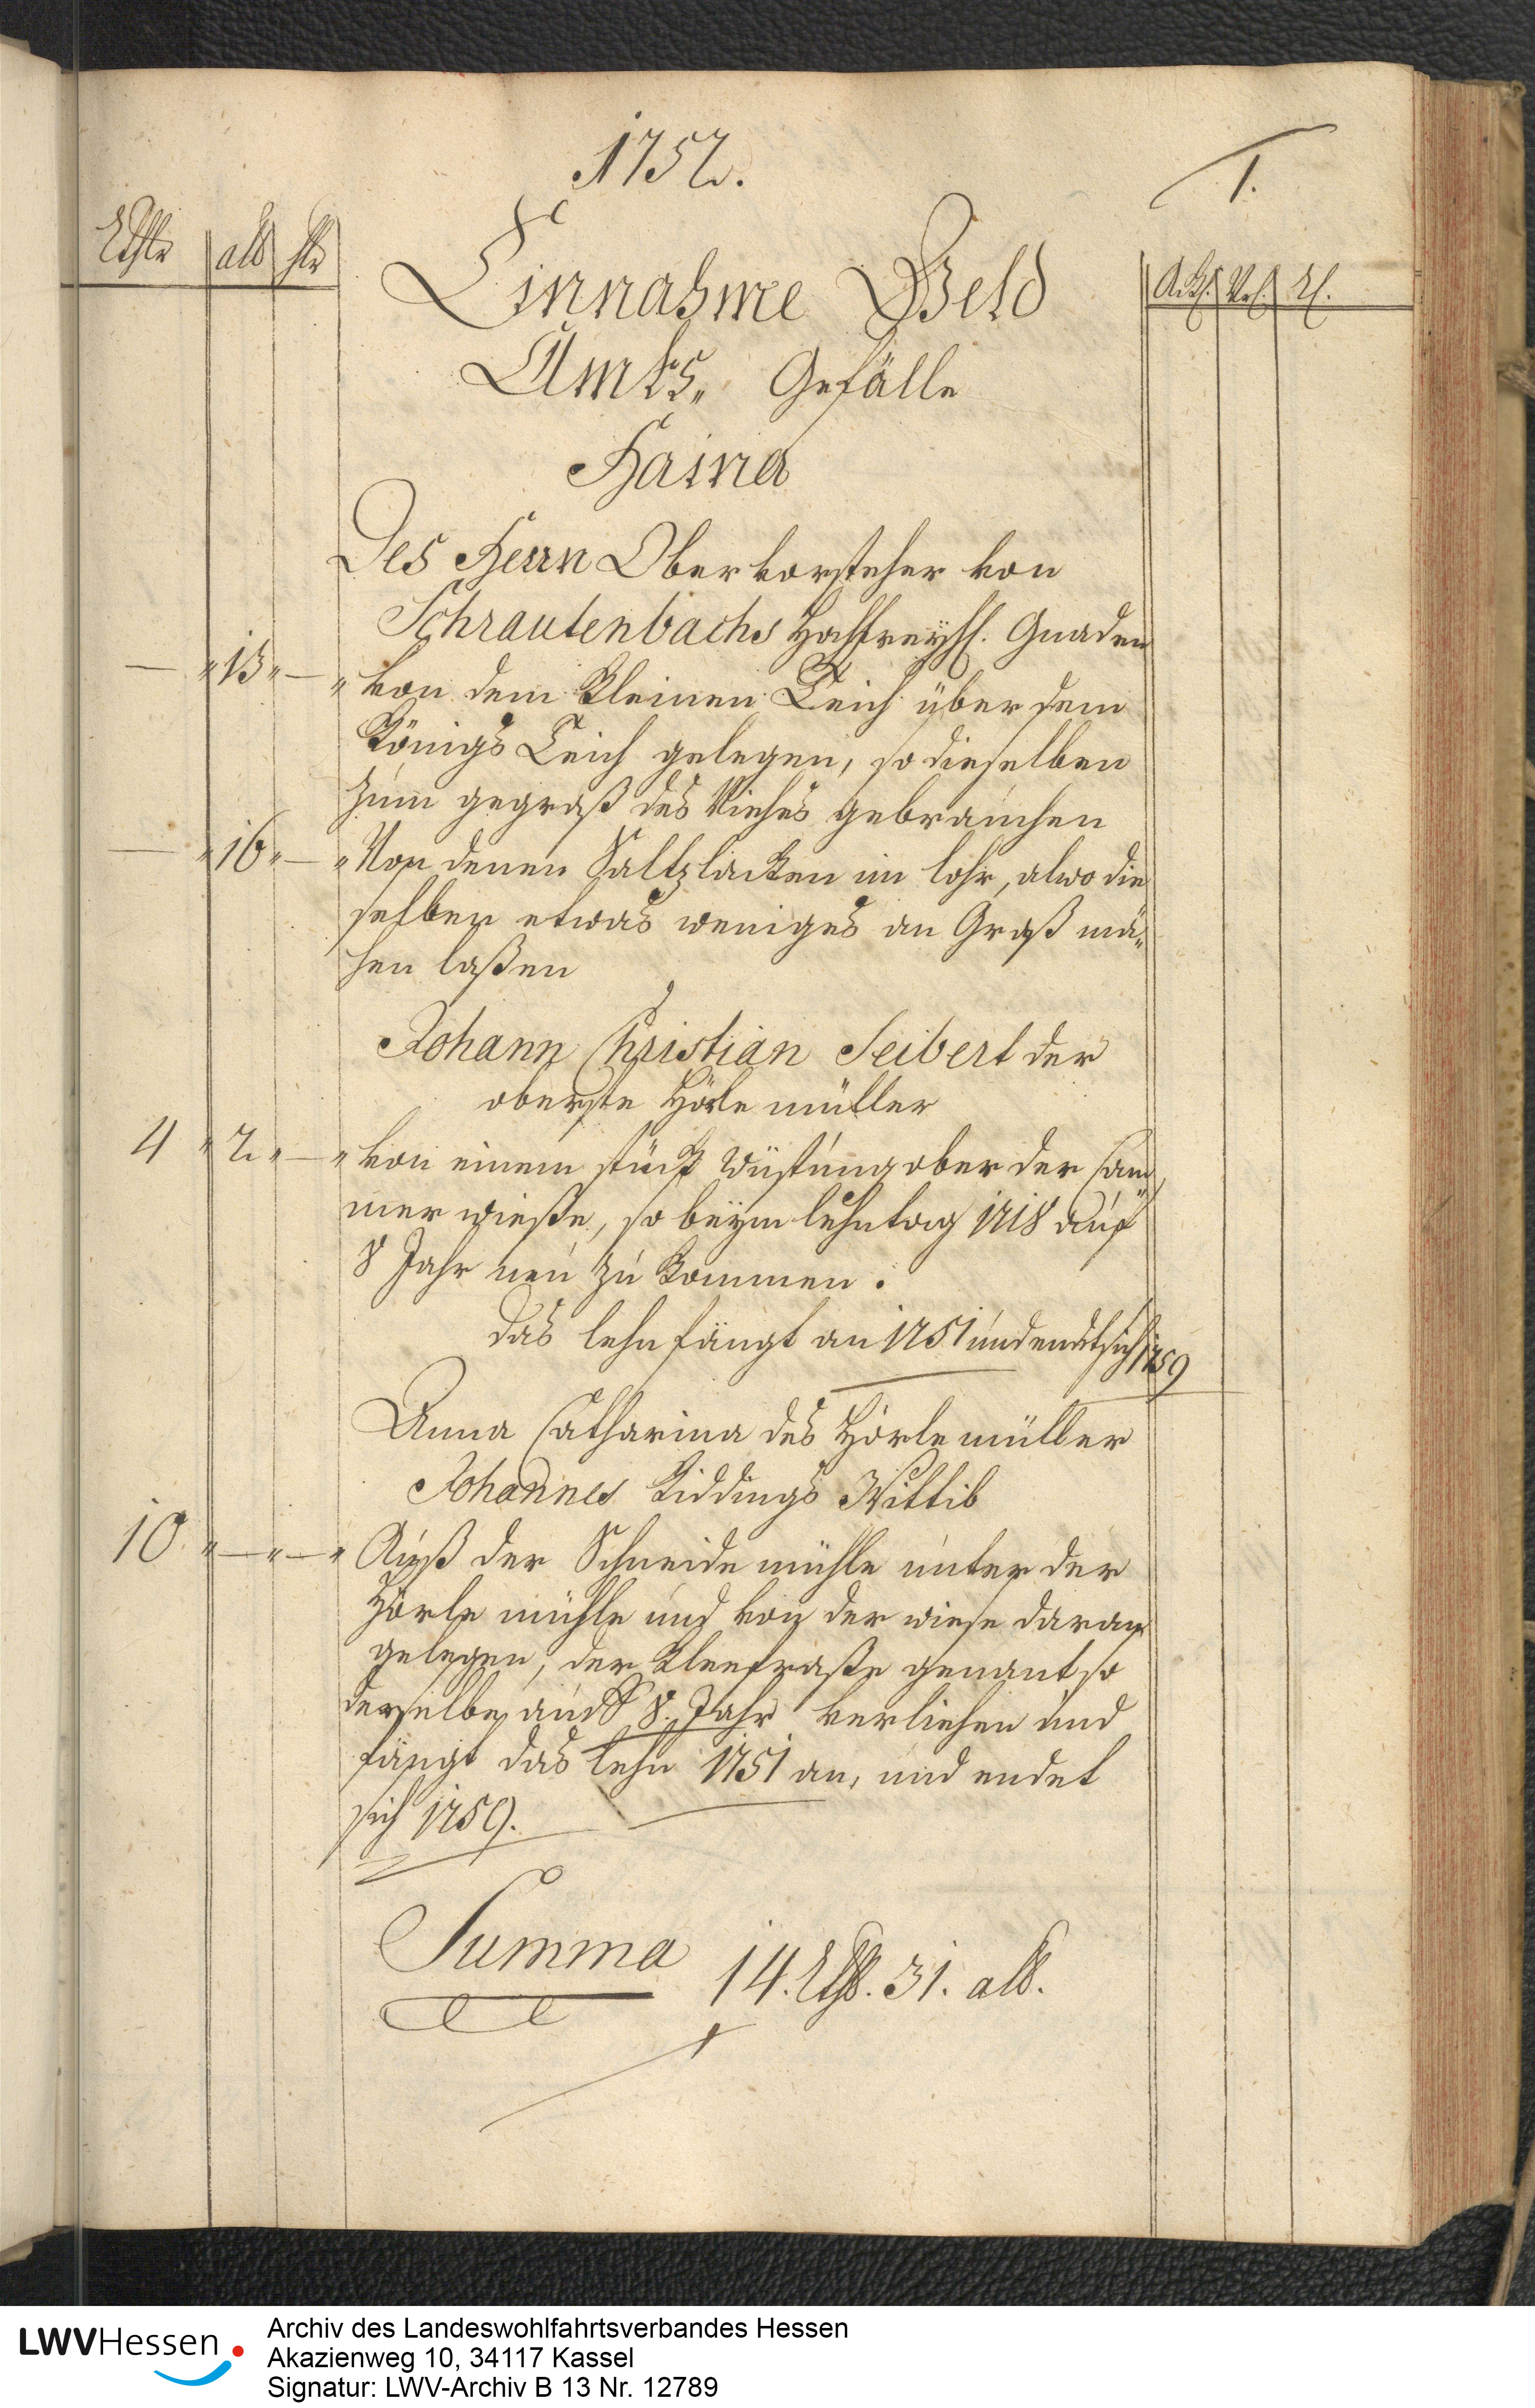 1752.
1.
Rthlr alb hlr
Ack. Vrl. Rt.
Einnahme Geld
Amts„ Gefälle
Haina
Des Herrn Ober vorsteher von
Schrautenbachs Hochfreyh. Gnaden
— „ 13 „ — „ von dem kleinen Teich über dem
Königs Teich gelegen, so dieselben
zum gegraß des Viehes gebrauchen
— „ 16 „ — „ Von denen Saltzlacken im lohr, alwo die
selben etwas weniges an Graß mä„
hen laßen
Johann Christian Seibert der
oberste Hörle müller
4 „ 2 „ — „ von einem stück wüstung ober der Cam„
mer wieße, so beym lehntag 1718 auf
8 Jahr neu zu kommen.
das lehn fängt an 1751 und endet sich 1759
Anna Catharina des Hörle müller
Johannes Riddings Wittib
10 „ — „ — „ Auß der Schneide mühle unter der
Hörle mühle und von der wiese daran
gelegen, der Kleefraße genant so
derselben auch 8. Jahr verliehen und
fängt das lehn 1751 an, und endet
sich 1759.
Summa 14. Rthl. 31. alb.
LWVHessen
Archiv des Landeswohlfahrtsverbandes Hessen
Akazienweg 10, 34117 Kassel
Signatur: LWV-Archiv B 13 Nr. 12789